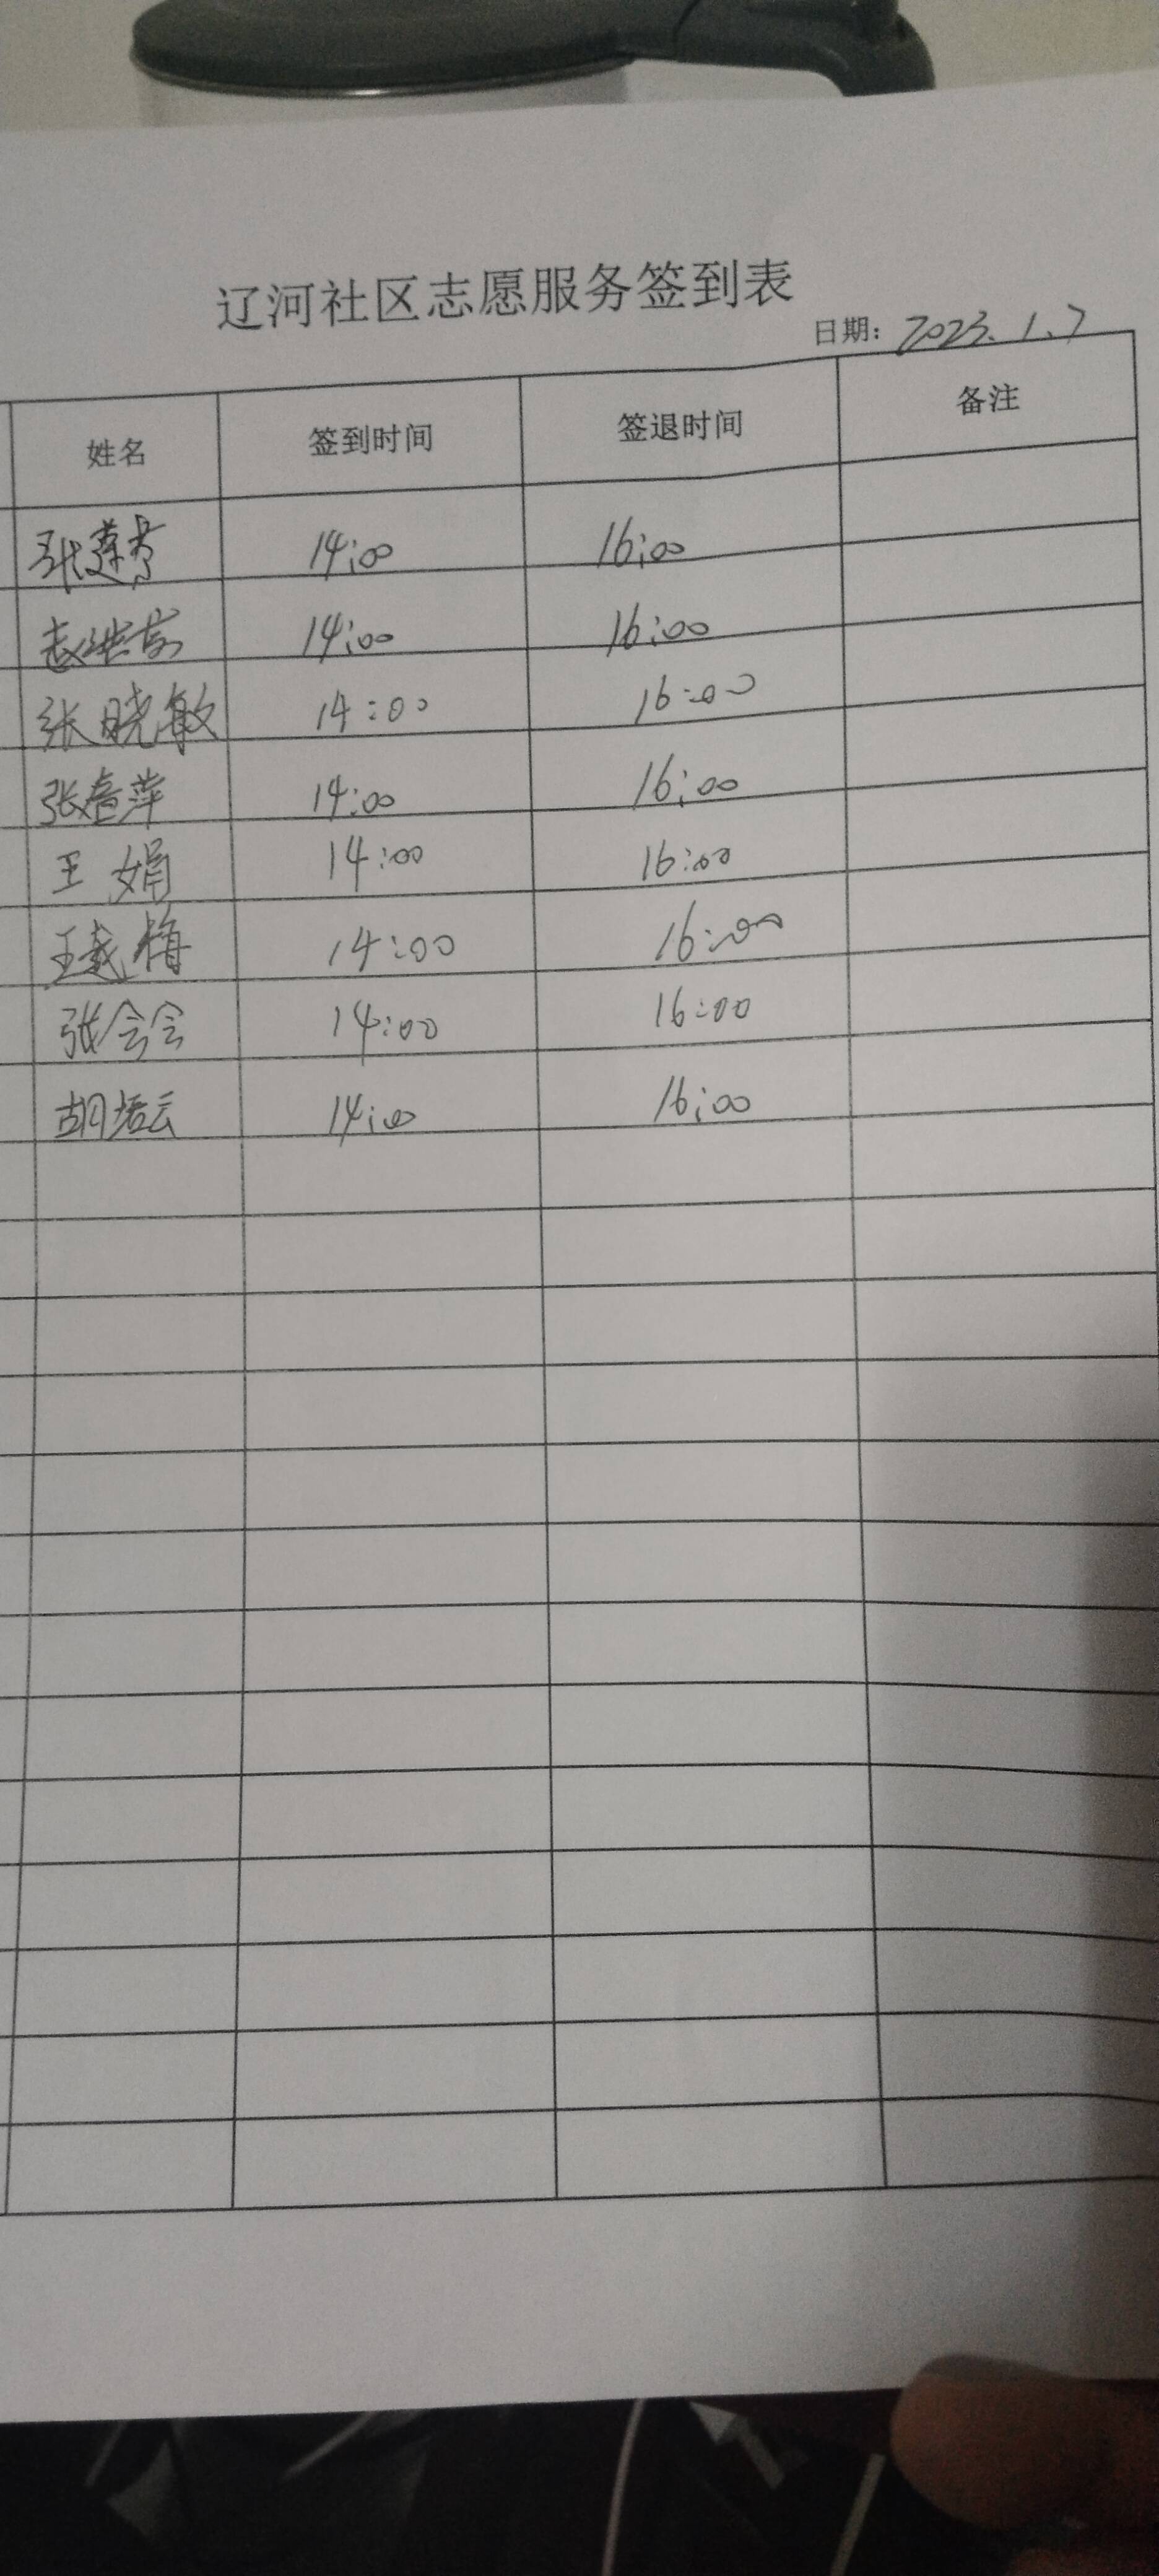 辽河社区志愿服务签到表
日期: 2023.1.7
姓名 签到时间 签退时间 备注
张莲芳 14:00 16:00
14:00 16:00
张晓敏 14:00 16:00
张春萍 14:00 16:00
王娟 14:00 16:00
王 梅 14:00 16:00
张会会 14:00 16:00
胡培云 14:00 16:00